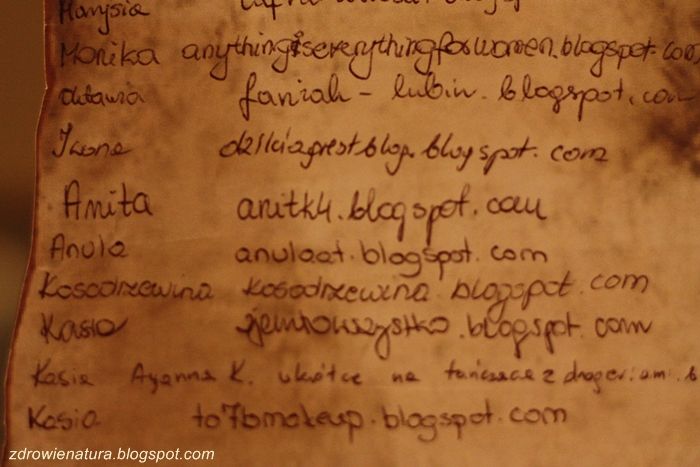 Marysia
Monika anythingiseverythingforwomen.blogspot.com
faniah-lubin.blogspot.com
Iwona blogspot.com
Anita anitk4.blogspot.com
Anula anulaat.blogspot.com
Kosodrzewina kosodrzewina.blogspot.com
Kasia zjemtowszystko.blogspot.com
Kasia Ayanna K. wkrótce na tańczące z drogeriami.b
Kasia to7bmakeup.blogspot.com
zdrowienatura.blogspot.com